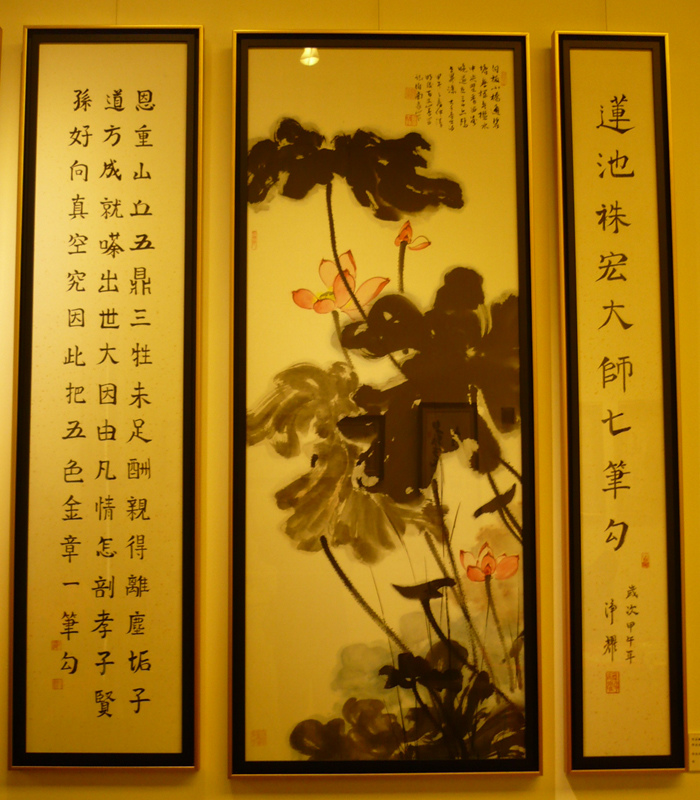 蓮池袾宏大師七筆勾
歲次甲午年
淨耀
恩重山丘五鼎三牲未足酬親得離塵垢子
道方成就嗏出世大因由凡情怎剖孝子賢
孫好向真空究因此把五色金章一筆勾